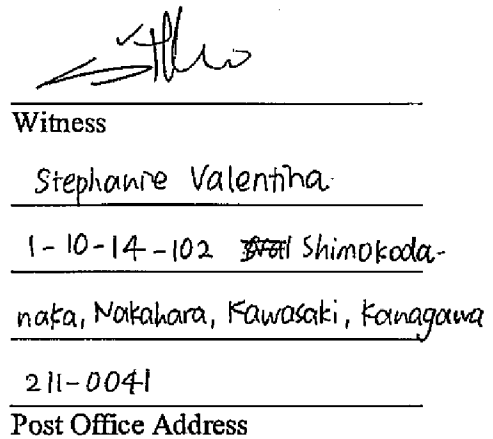 Witness
Stephanie Valentina
1-10-14-102 Shimokoda-
naka, Nakahara, Kawasaki, Kanagawa
211-0041
Post Office Address